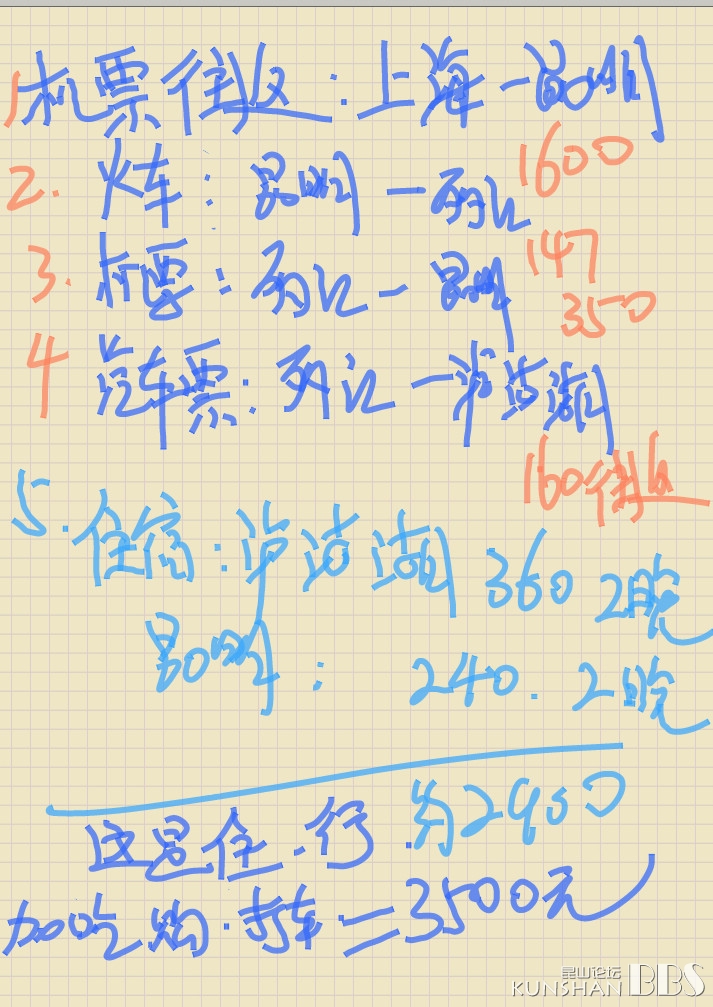 1机票往返:上海一昆明
1600
2. 火车:昆明一丽江
147
3. 机票:丽江一昆明
350
4 汽车票:丽江一泸沽湖
160往返
5.住宿:泸沽湖 360 2晚
昆明: 240. 2晚
这是住.行 约2900
加吃.购.打车=3500元
昆山论坛
KUNSHAN BBS